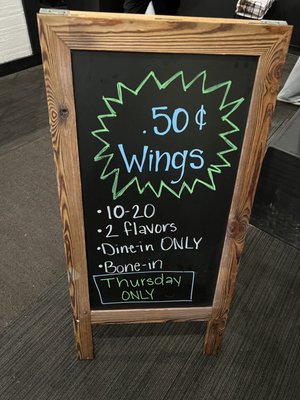 .50¢
Wings
• 10-20
• 2 flavors
• Dine-in ONLY
• Bone-in
Thursday
ONLY